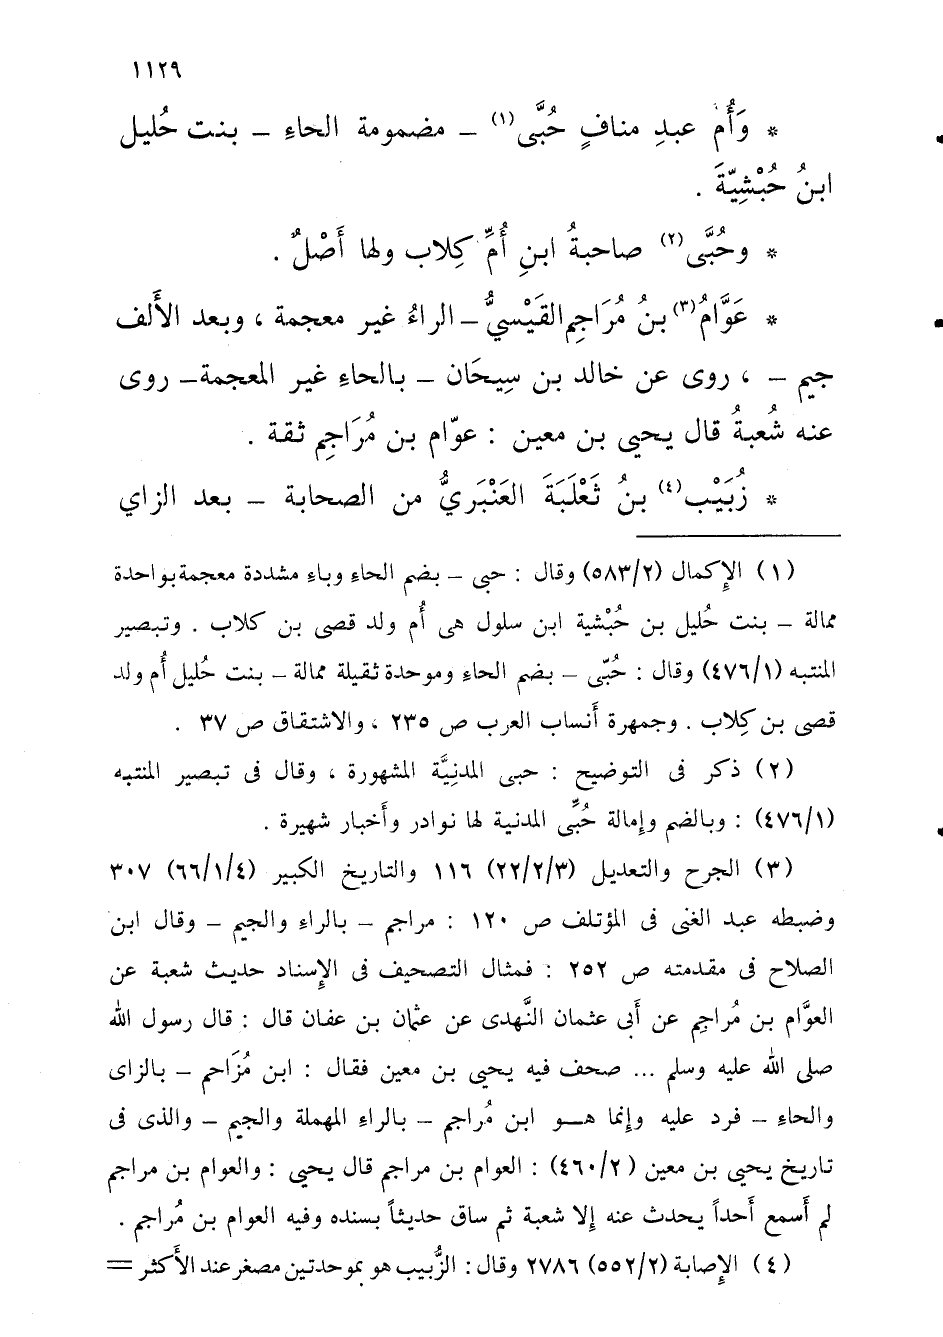 ١١٢٩
* وَأُمُّ عبدِ منافٍ حُبَّى(١) – مضمومة الحاءِ – بنت حُليل
ابنُ حُبْشِيّةَ .
* وحُبَّى(٢) صاحبةُ ابنِ أُمِّ كِلاب ولها أَصْلٌ .
* عَوَّامُ(٣) بنُ مُرَاجِمِ القَيْسيُّ – الراءُ غير معجمة ، وبعد الأَلف
جيم – ، روى عن خالد بن سِيحَان – بالحاءِ غير المعجمة– روى
عنه شُعبةُ قال يحيى بن معين : عوّام بن مُرَاجِم ثقة .
* زُبَيْب(٤) بنُ ثَعْلَبَةَ العَنْبَرِيُّ من الصحابة – بعد الزاي
(١) الإِكمال (٥٨٣/٢) وقال : حبى – بضم الحاء وباء مشددة معجمة بواحدة
ممالة – بنت حُليل بن حُبْشية ابن سلول هى أُم ولد قصى بن كلاب . وتبصير
المنتبه (٤٧٦/١) وقال : حُبّى – بضم الحاء وموحدة ثقيلة ممالة – بنت حُليل أُم ولد
قصى بن كِلاب . وجمهرة أَنساب العرب ص ٢٣٥ ، والاشتقاق ص ٣٧ .
(٢) ذكر فى التوضيح : حبى المدنِيَّة المشهورة ، وقال فى تبصير المنتبه
(٤٧٦/١) : وبالضم وإِمالة حُبَّى المدنية لها نوادر وأَخبار شهيرة .
(٣) الجرح والتعديل (٢٢/٢/٣) ١١٦ والتاريخ الكبير (٦٦/١/٤) ٣٠٧
وضبطه عبد الغنى فى المؤتلف ص ١٢٠ : مراجم – بالراءِ والجيم – وقال ابن
الصلاح فى مقدمته ص ٢٥٢ : فمثال التصحيف فى الإِسناد حديث شعبة عن
العوَّام بن مُراجِم عن أَبى عثمان النَّهدى عن عثمان بن عفان قال : قال رسول الله
صلى الله عليه وسلم ... صحف فيه يحيى بن معين فقال : ابن مُزَاحم – بالزاى
والحاءِ – فرد عليه وإِنما هـو ابن مُراجم – بالراءِ المهملة والجيم – والذى فى
تاريخ يحيى بن معين (٤٦٠/٢) : العوام بن مراجم قال يحيى : والعوام بن مراجم
لم أَسمع أَحداً يحدث عنه إِلا شعبة ثم ساق حديثاً بسنده وفيه العوام بن مُراجم .
(٤) الإِصابة (٥٥٢/٢) ٢٧٨٦ وقال : الزُّبيب هو بموحدتين مصغر عند الأَكثر =